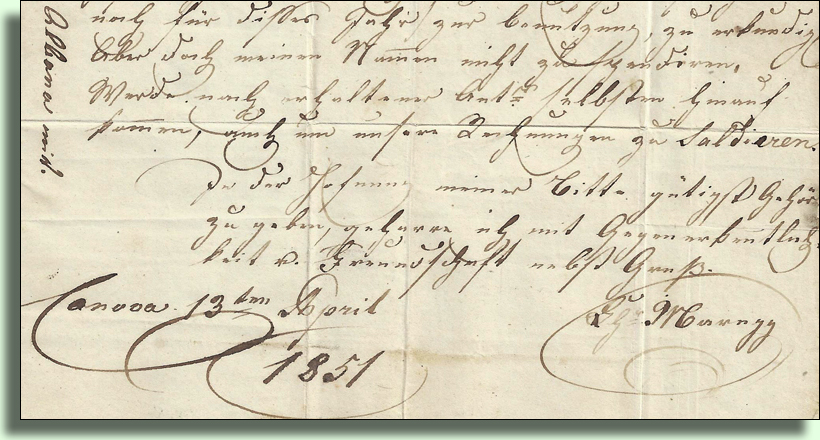 noch für disses Jahr zur benutzung, zu erkundig
aber doch meinen Nammen nicht zu spendiren,
Werde nach erhaltener Antw selbsten hinauf
kommen, auch um unsere Rechnungen zu Saldieren.
In der Hofnung meiner Bitte gütigst Gehör
zu geben, geharre ich mit Gegenerkentlich
keit u. Freundschaft nebst Gruß.
Canova 13ten April
1851
Chr Maregg